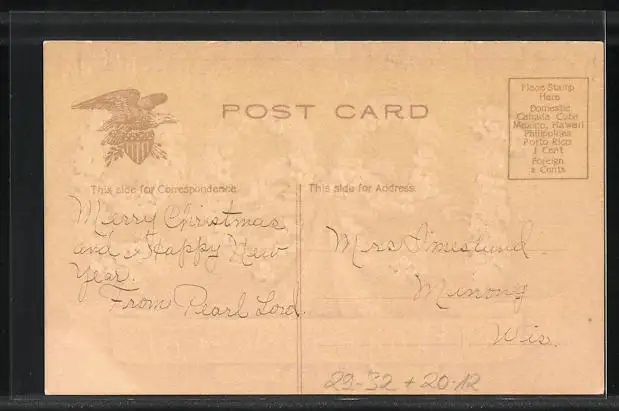 POST CARD
Place Stamp
Here
Domestic
Canada Cuba
Mexico, Hawaii
Philippines
Porto Rico
1 Cent
Foreign
2 Cents
This side for Correspondence
This side for Address.
Merry Christmas
and a Happy New
Year.
From Pearl Lord
Mrs
Minong
Wis.
29-32 + 20-12